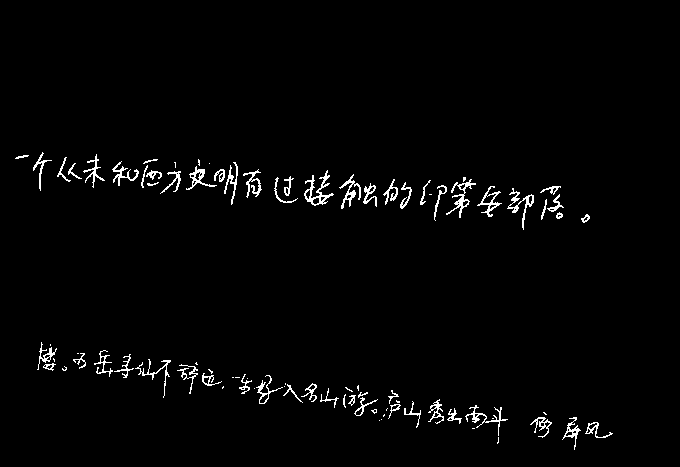 一个从未和西方文明有过接触的印第安部落。
楼。五岳寻仙不辞远,一生好入名山游。庐山秀出南斗傍 屏风